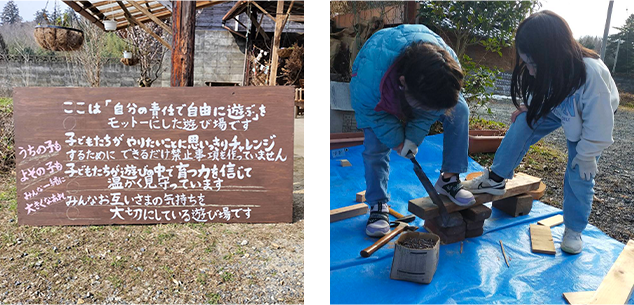 ここは「自分の責任で自由に遊ぶ」を
モットーにした遊び場です
子どもたちが やりたいことに思いきりチャレンジ
するために できるだけ禁止事項を作っていません
子どもたちが遊びの中で育つ力を信じて
温かく見守っています
みんなお互いさまの気持ちを
大切にしている遊び場です
うちの子も
よその子も
みんな一緒に
大きくなあれ